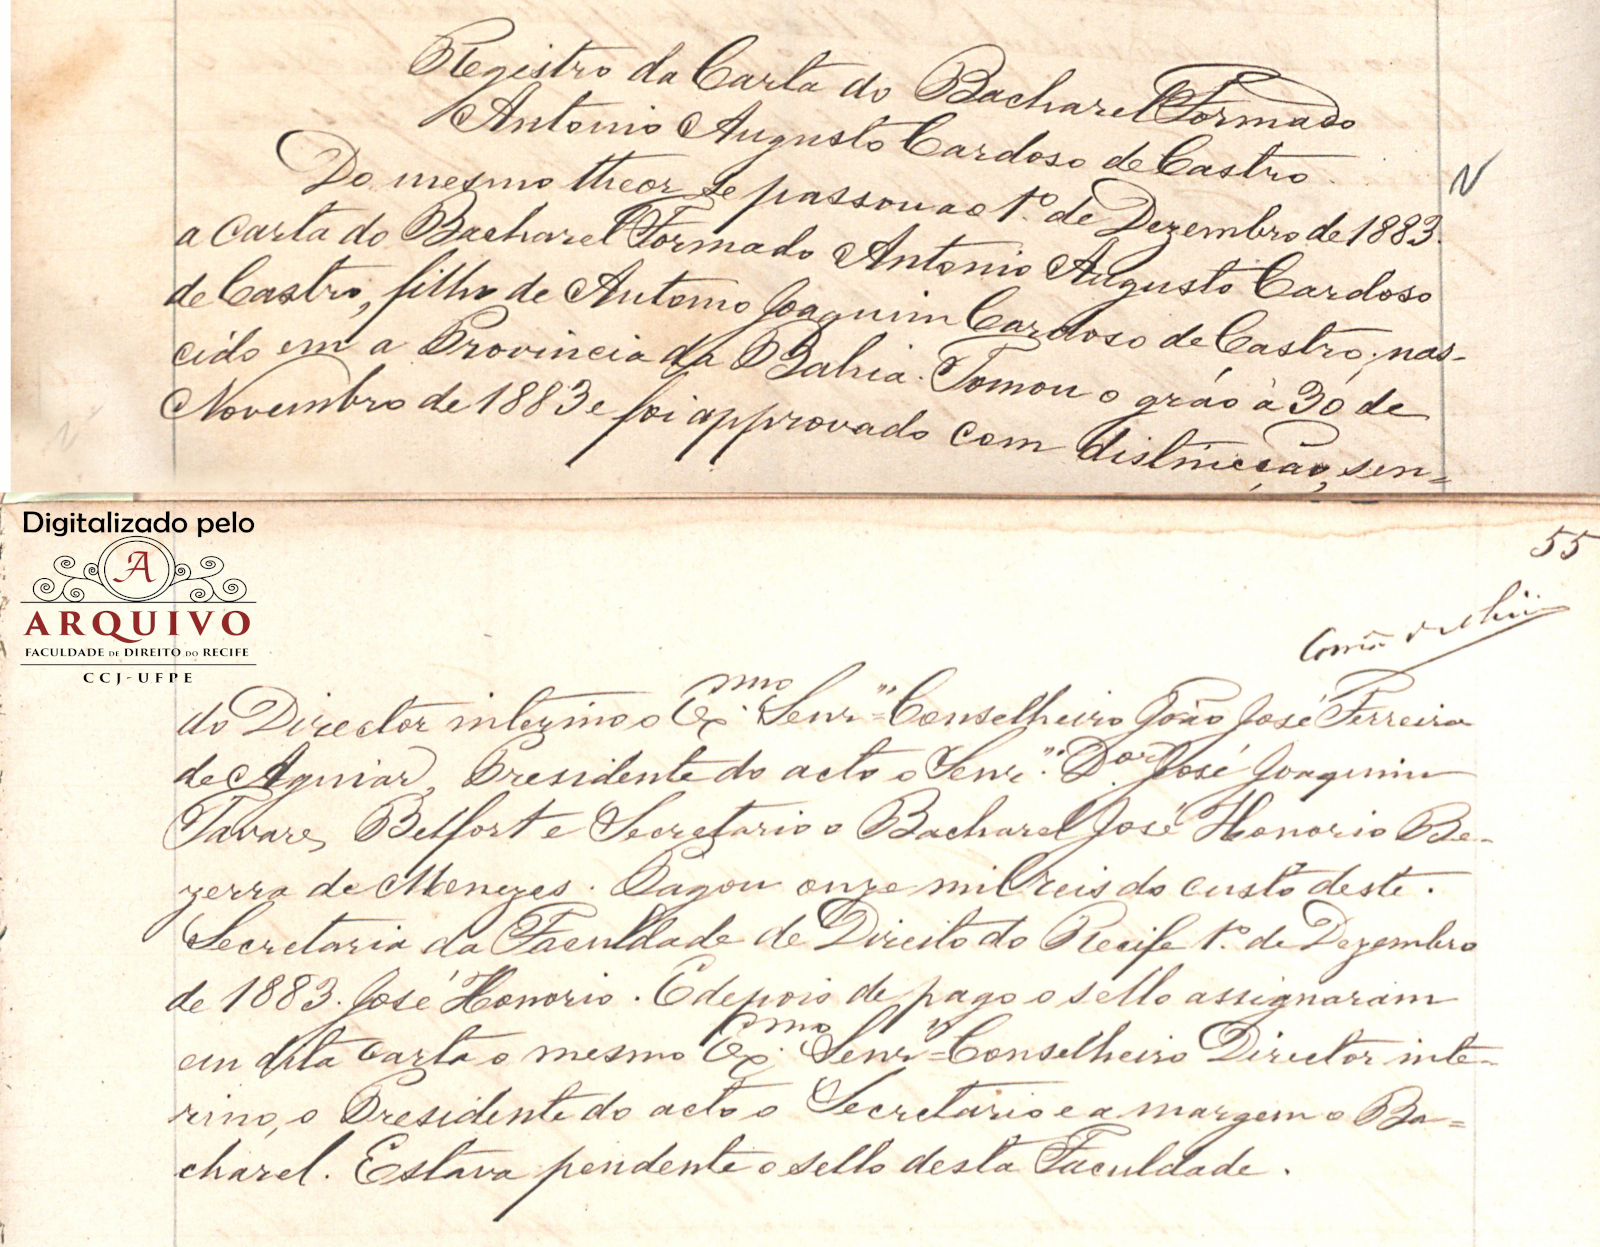 Registro da Carta do Bacharel Formado
Antonio Augusto Cardoso de Castro.
Do mesmo theor se passou ao 1º de Dezembro de 1883.
a Carta do Bacharel Formado Antonio Augusto Cardoso
de Castro, filho de Antonio Joaquim Cardoso de Castro, nas-
cido em a Provincia da Bahia. Tomou o gráo à 30 de
Novembro de 1883 e foi approvado com distincção, sen-
Digitalizado pelo
A
ARQUIVO
FACULDADE DE DIREITO DO RECIFE
CCJ-UFPE
55
do Director interino o Exmo. Senr. Conselheiro João José Ferreira
de Aguiar, Presidente do acto o Senr. Dor. José Joaquim
Tavares Belfort e Secretario o Bacharel José Honorio Be-
zerra de Menezes. Pagou onze mil reis do custo deste.
Secretaria da Faculdade de Direito do Recife 1º de Dezembro
de 1883. José Honorio. E depois de pago o sello assignaram
em dita carta o mesmo Exmo. Senr. Conselheiro Director inte-
rino, o Presidente do acto o Secretario e a margem o Ba-
charel. Estava pendente o sello desta Faculdade.